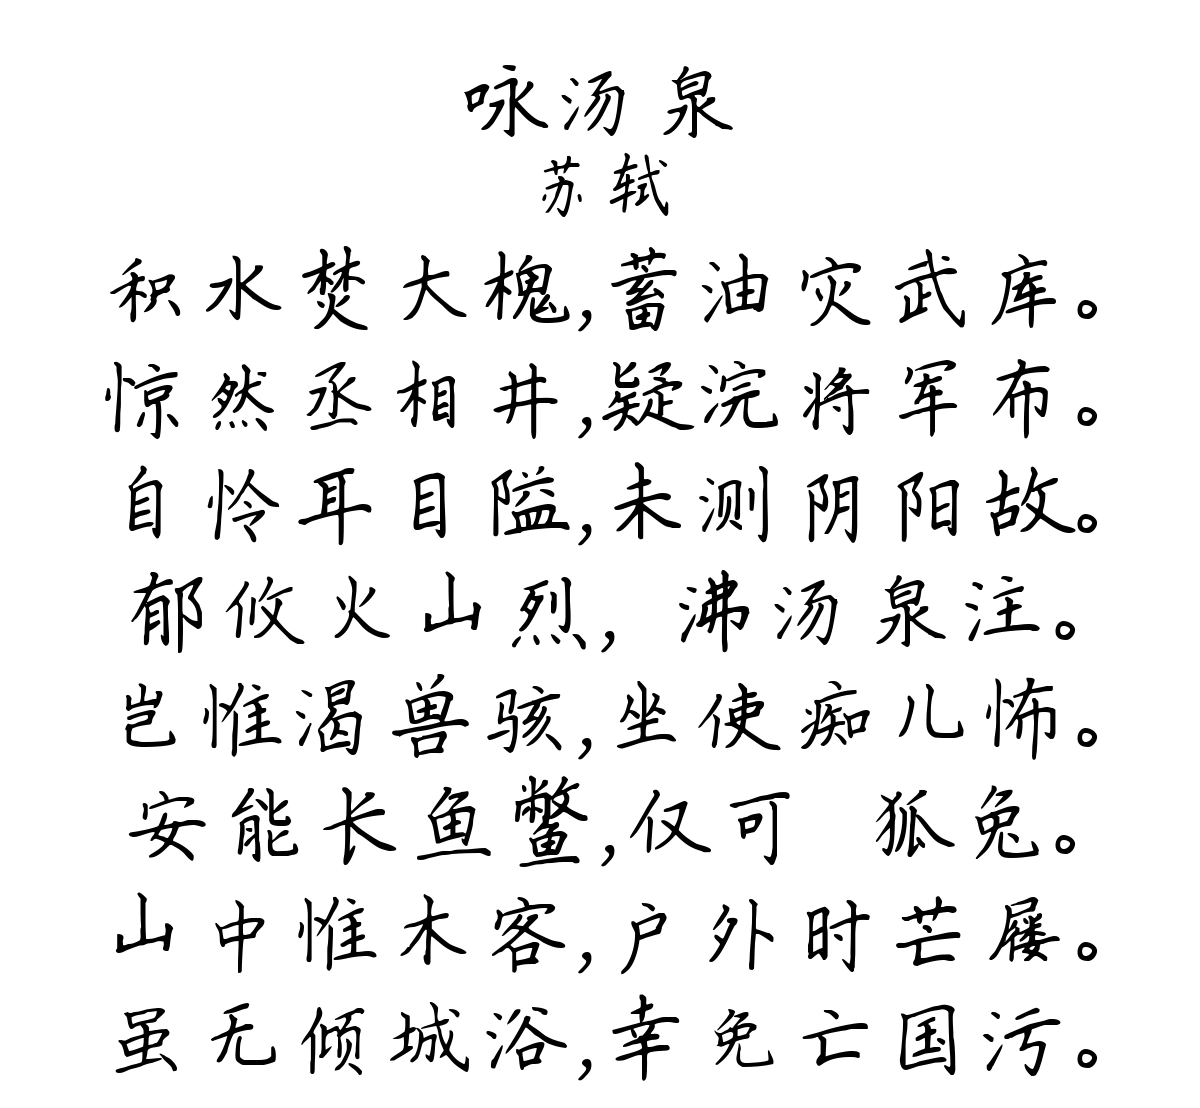 咏汤泉
苏轼
积水焚大槐,蓄油灾武库。
惊然丞相井,疑浣将军布。
自怜耳目隘,未测阴阳故。
郁攸火山烈,沸汤泉注。
岂惟渴兽骇,坐使痴儿怖。
安能长鱼鳖,仅可 狐兔。
山中惟木客,户外时芒屦。
虽无倾城浴,幸免亡国污。